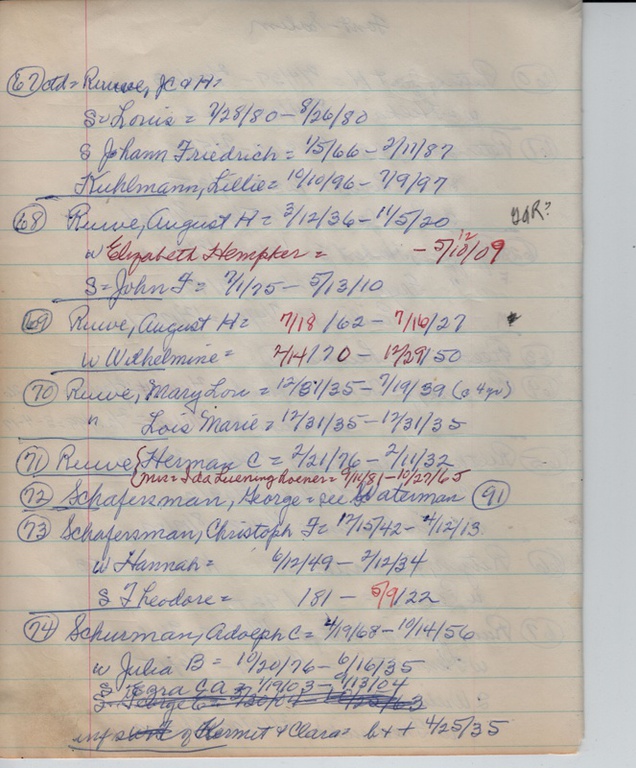 67 ctd = Ruwe, JC & H =
S = Louis = 7/28/80 - 8/26/80
S Johann Friedrich = 1/5/66 - 2/11/87
Kuhlmann, Lillie = 10/10/96 - 7/9/97
68 Ruwe, August H = 3/12/36 - 11/5/20
w Elizabeth Hempker = - 5/10/09 12
S = John F = 7/1/75 - 5/13/10
69 Ruwe, August H = 7/18/62 - 7/16/27
w Wilhelmine = 2/14/70 - 12/29/50
70 Ruwe, Mary Lou = 12/31/35 - 7/19/39
" Lois Marie = 12/31/35 - 12/31/35
71 Ruwe { Herman C = 2/21/76 - 2/11/32
Mrs = Ida Luening Roener = 9/11/81 - 10/27/65
72 Schafersman, George = see Waterman 91
73 Schafersman, Christoph F = 12/15/42 - 4/12/13
w Hannah = 6/12/49 - 2/12/34
S Theodore = 181 - 5/9/22
74 Schurman, Adolph C = 4/19/68 - 10/14/56
w Julia B = 10/20/76 - 6/16/35
S Ezra CA = 1/19/03 - 1/13/04
inf of Kermit & Clara = b + + 4/25/35